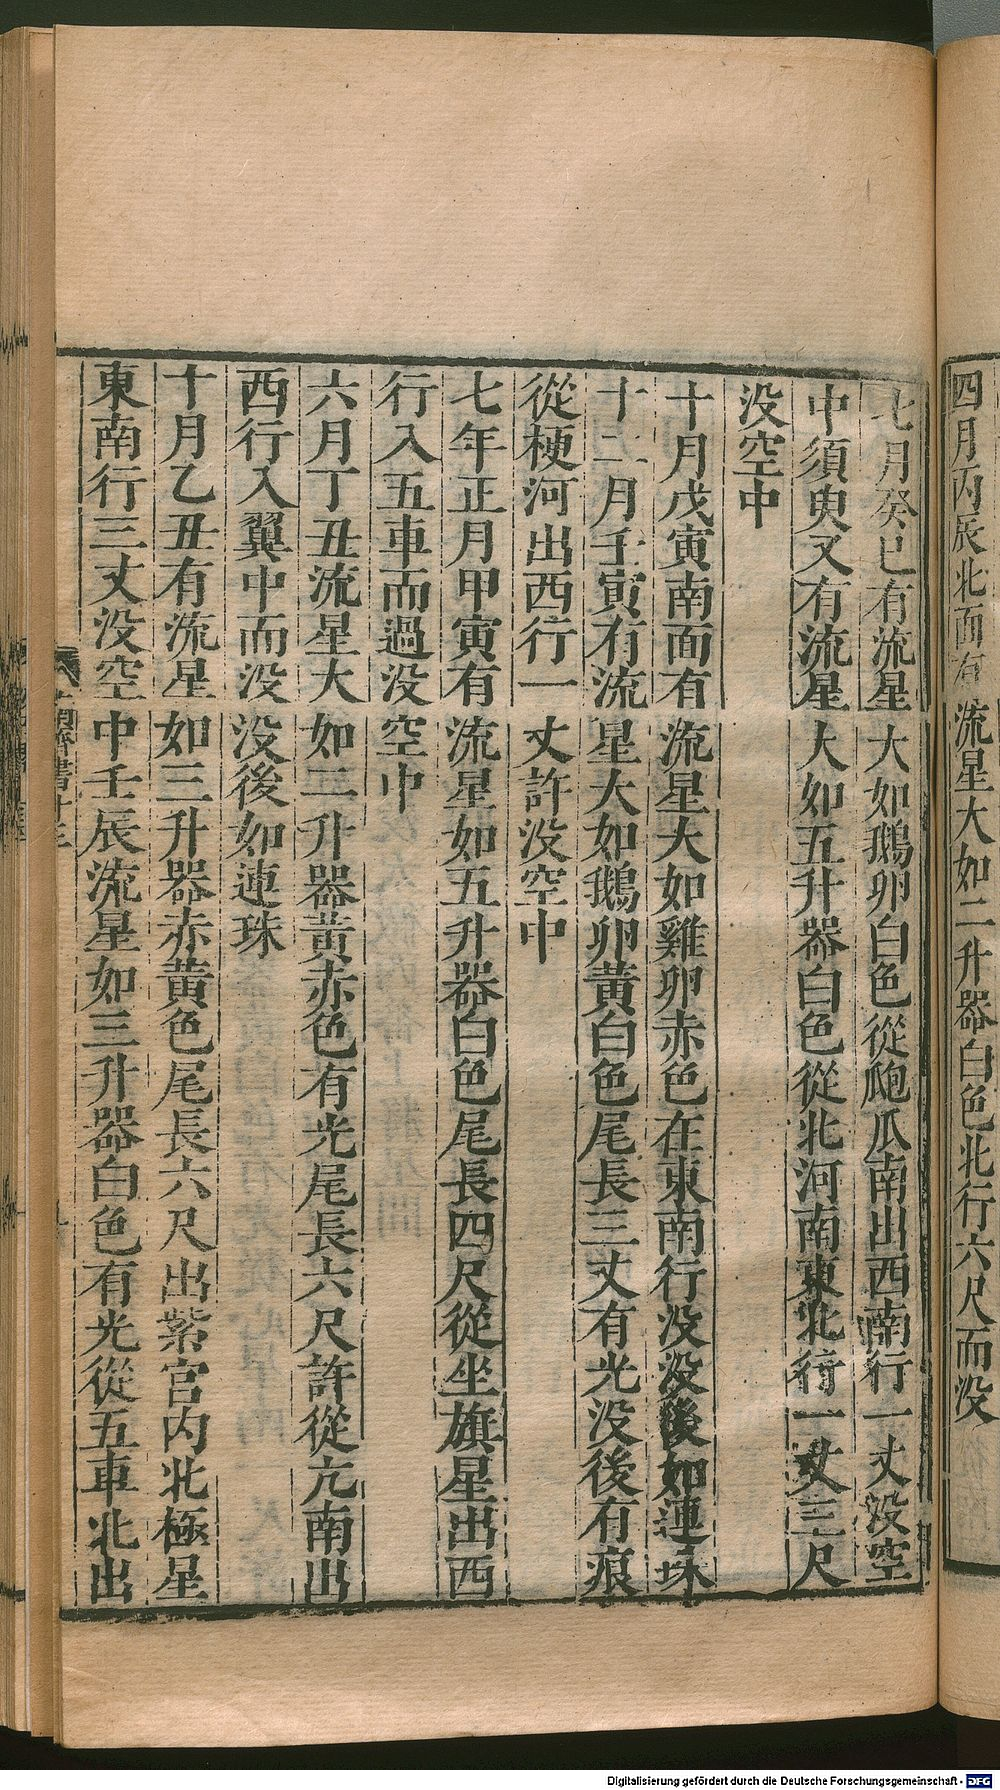 四月丙辰北面有流星大如二升器白色北行六尺而没
七月癸巳有流星大如鵝卵白色從匏瓜南出西南行一丈没空
中須臾又有流星大如五升器白色從北河南東北行一丈三尺
没空中
十月戊寅南面有流星大如雞卵赤色在東南行没没後如連珠
十二月壬寅有流星大如鵝卵黄白色尾長三丈有光没後有痕
從梗河出西行一丈許没空中
七年正月甲寅有流星如五升器白色尾長四尺從坐旗星出西
行入五車而過没空中
六月丁丑流星大如二升器黄赤色有光尾長六尺許從亢南出
西行入翼中而没没後如連珠
十月乙丑有流星如三升器赤黄色尾長六尺出紫宫内北極星
東南行三丈没空中壬辰流星如三升器白色有光從五車北出
Digitalisierung gefördert durch die Deutsche Forschungsgemeinschaft - DFG